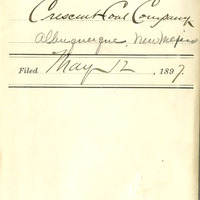 Crescent Coal Company
Albuquerque, New Mexico
Filed May 12, 1897.